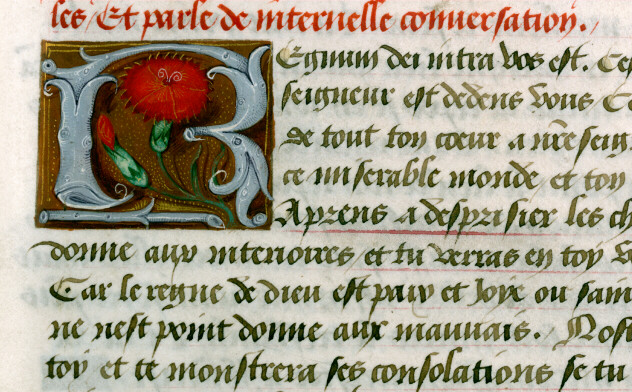 les, Et parle de internelle conuersation.
REgnum dei intra vos est. Ce
seigneur est dedens vous Co
de tout ton coeur a nr̄e seig
ce miserable monde, et ton
Aprens a desprisier les ch
donne aux interioires et tu verras en toy
Car le reyne de dieu est paix et Joye ou sain
ne nest point donne aux mauuais. Nost
toy et te monstrera ses consolations se tu